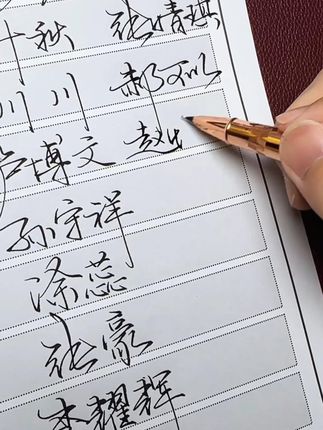 秋 张婧琪
川 郝可以
博文 赵
孙宇祥
涂蕊
张豪
李耀辉